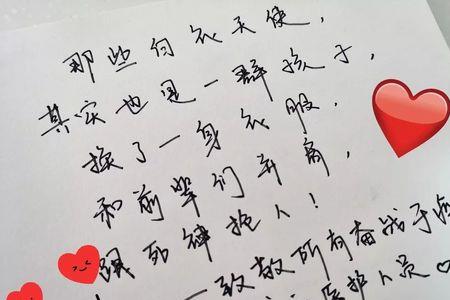 那些白衣天使，
其实也是一群孩子，
换了一身衣服，
和前辈们并肩，
跟死神抢人！
一致敬所有奋战于
医护人员